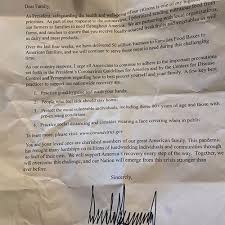 Dear Family,
As President, safeguarding the health and
As part of our response to the coronavirus, I prioritized sending nutritious food from
our farmers to families in need throughout America.
ensure that you receive locally sourced fruits,
and dairy and meat products.
Over the last four weeks, we have delivered 50 million Farmers to Families Food Boxes to
American families, and we will continue to serve those most in need during this challenging
time.
As our country reopens, I urge all Americans to continue to adhere to the important precautions
set forth in the President's Coronavirus Guidelines for America and by the Centers for Disease
Control and Prevention regarding how to best protect yourself and your family. A few key best
practices to support us in this transition include:
1. Practice good hygiene and wash your hands.
2. People who feel sick should stay home.
3. Protect the most vulnerable of all populations, including those 80+ years of age and those with
pre-existing conditions.
4. Practice social distancing and consider wearing a face covering when in public.
To learn more, please visit: www.coronavirus.gov
You and your loved ones are cherished members of our great American family. This pandemic
has brought many hardships on millions of hardworking individuals and communities through
no fault of their own. We will support America's recovery every step of the way. Together, we
will overcome this challenge, and our Nation will emerge from this crisis stronger than
ever before.
Sincerely,